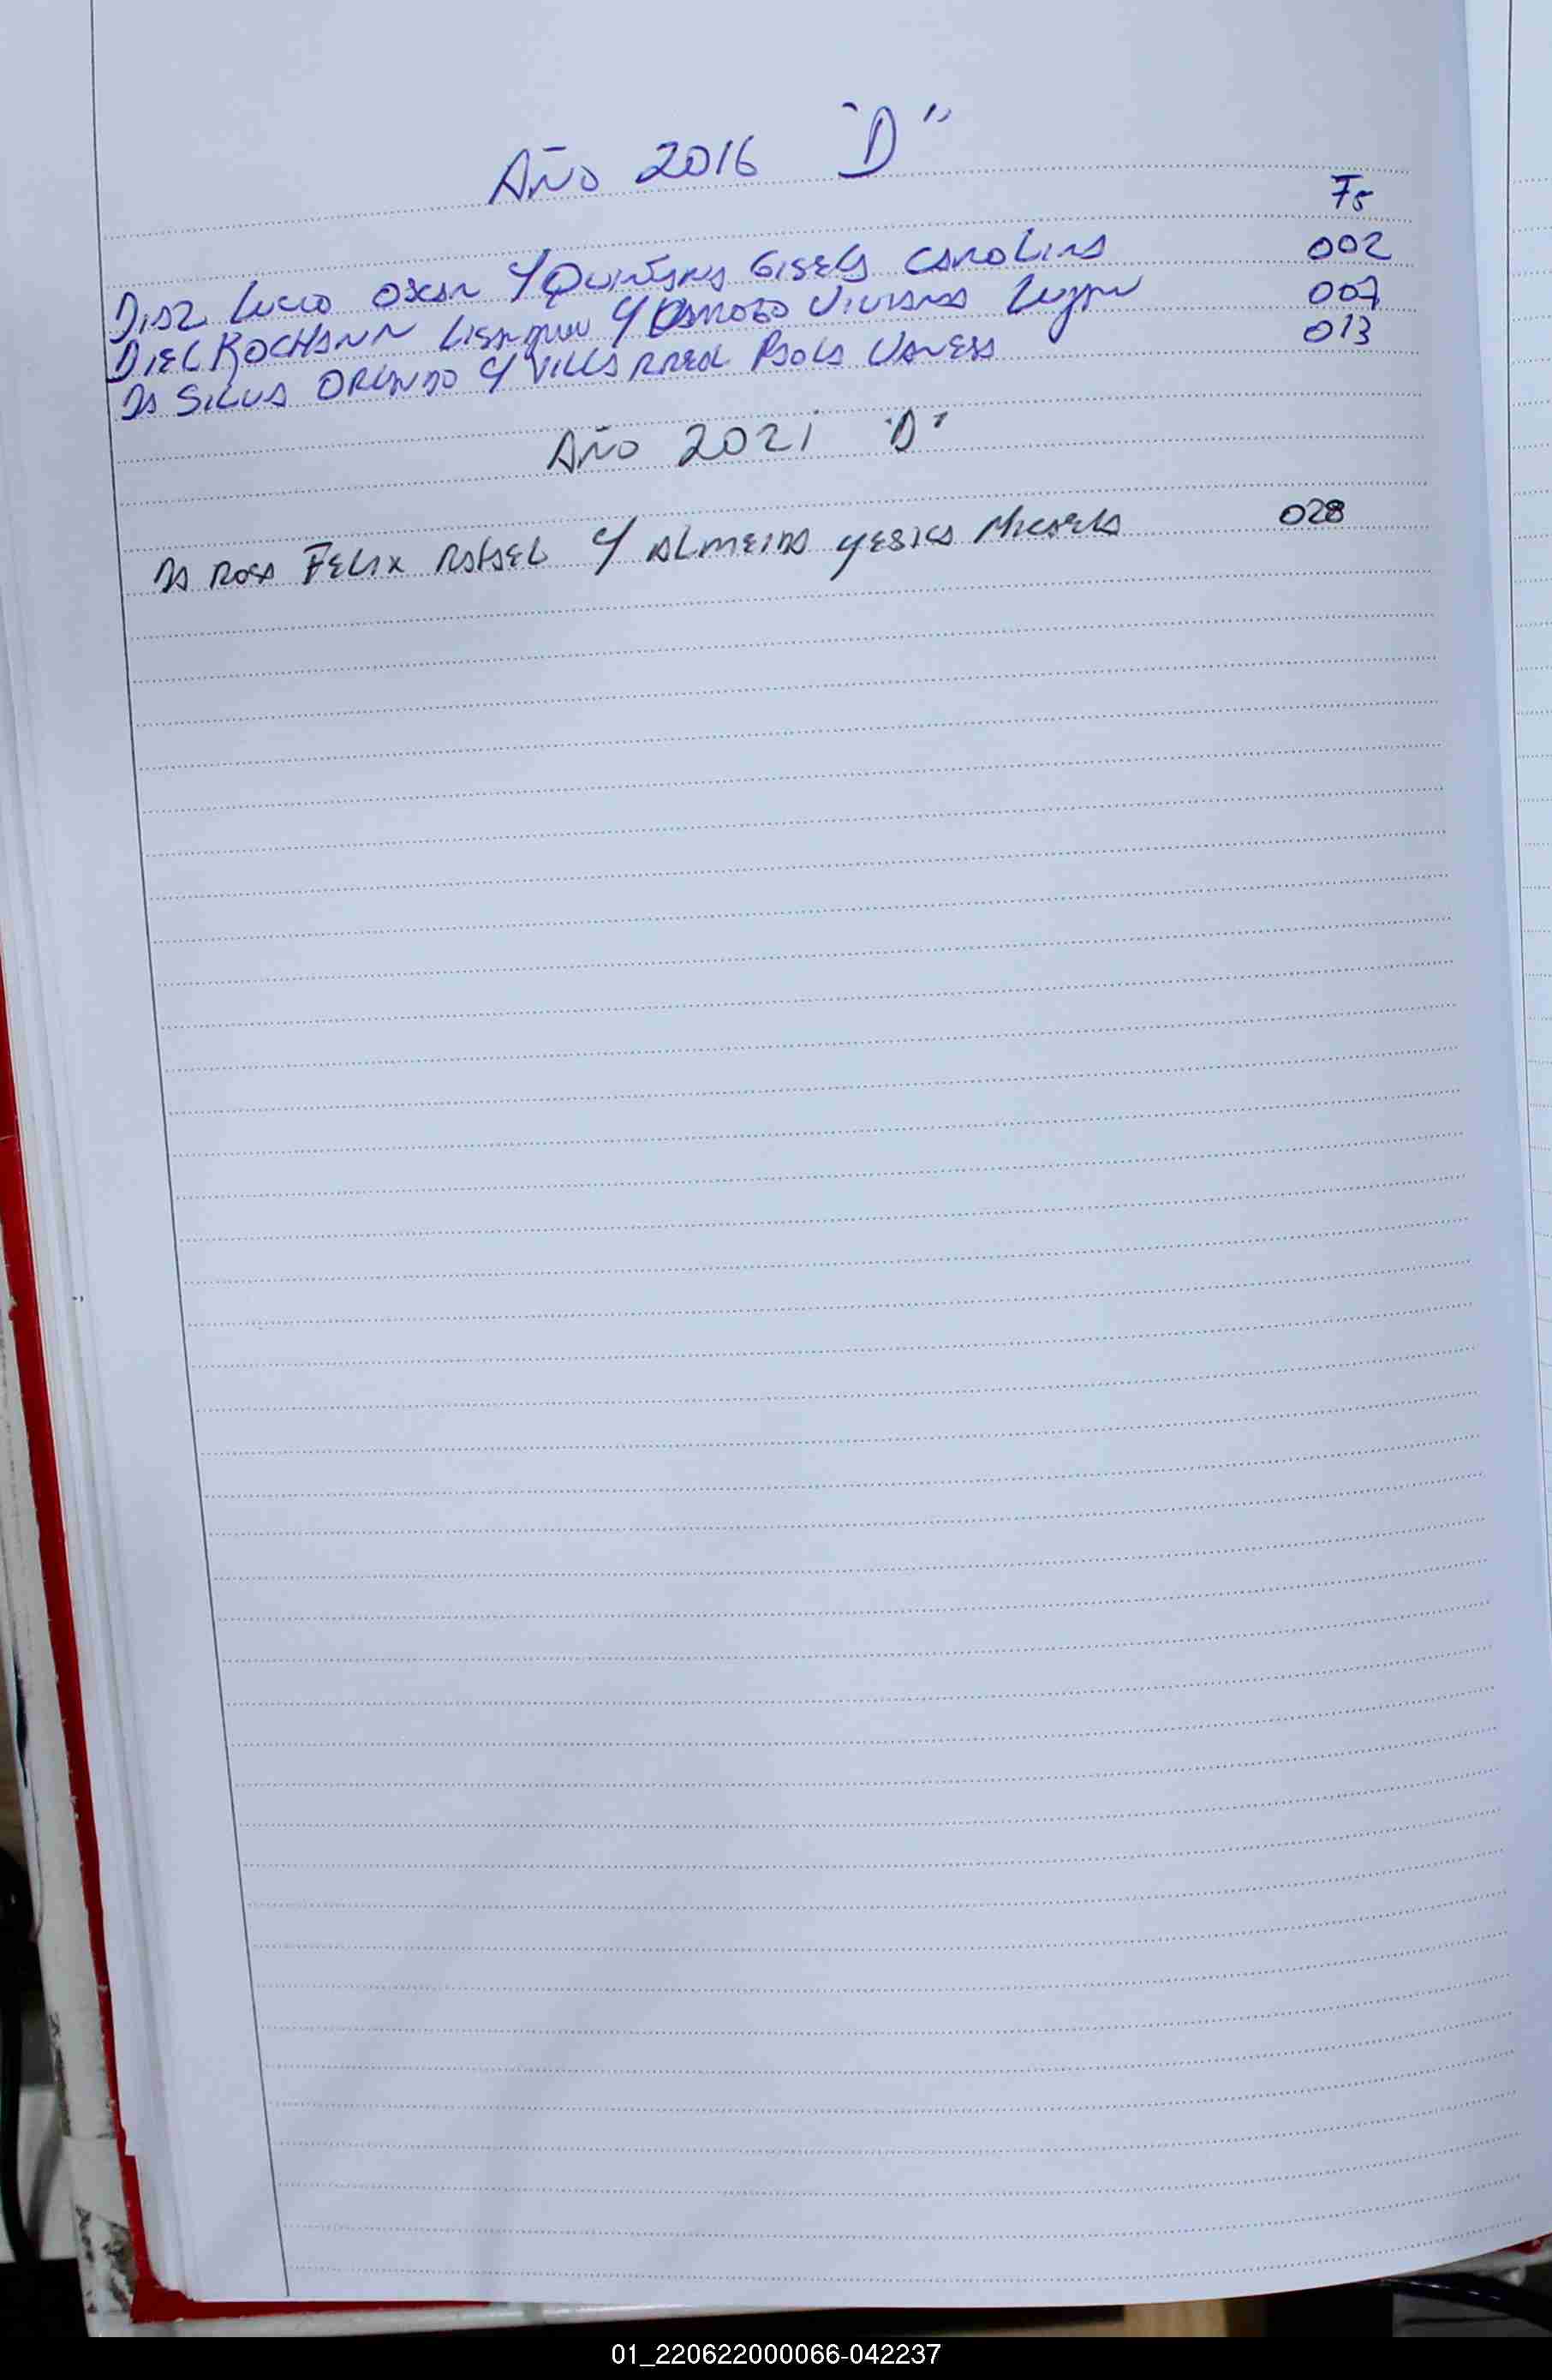 Año 2016 "D"
Fs
Diaz Lucio Oscar y Quintana Gisela Carolina 002
Diel Rochann y Viviana Lujan 007
Da Silva Orlando y Villarreal Paola Vanesa 013
Año 2021 "D"
Da Rosa Felix Rafael y Almeida Yesica Micaela 028
01_220622000066-042237